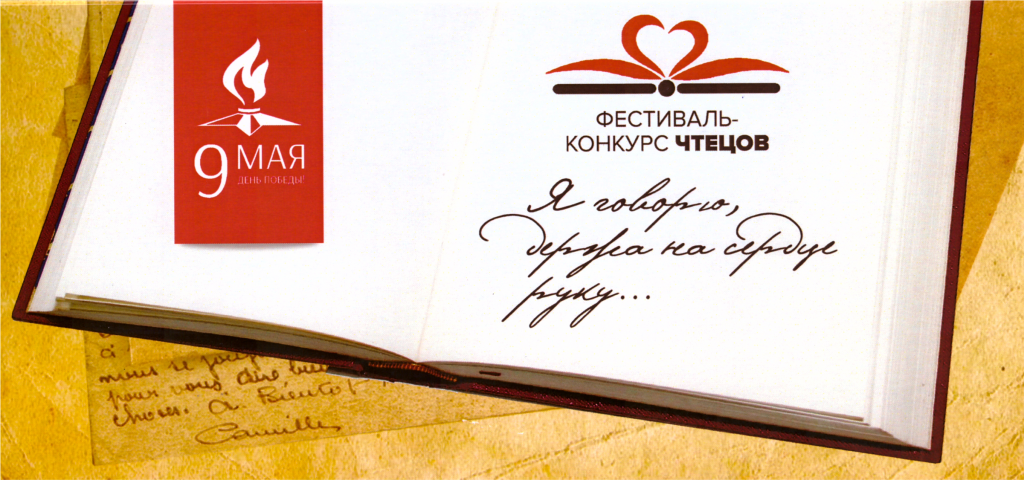 9 МАЯ
ДЕНЬ ПОБЕДЫ!
ФЕСТИВАЛЬ-
КОНКУРС ЧТЕЦОВ
Я говорю,
держа на сердце
руку...
ci
vous
pour vous dire
choses. A. Bientôt
Camille